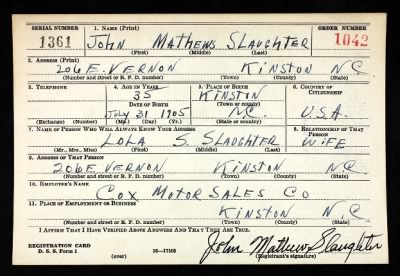 SERIAL NUMBER 1. NAME (Print) ORDER NUMBER
1361 JOHN MATHEWS SLAUGHTER 1042
(First) (Middle) (Last)
2. ADDRESS (Print)
206 E. VERNON KINSTON N C
(Number and street or R. F. D. number) (Town) (County) (State)
3. TELEPHONE 4. AGE IN YEARS 5. PLACE OF BIRTH 6. COUNTRY OF CITIZENSHIP
35 KINSTON
DATE OF BIRTH (Town or county)
JULY 31 1905 N.C. U.S.A.
(Exchange) (Number) (Mo.) (Day) (Yr.) (State or country)
7. NAME OF PERSON WHO WILL ALWAYS KNOW YOUR ADDRESS 8. RELATIONSHIP OF THAT PERSON
LOLA S. SLAUGHTER WIFE
(Mr., Mrs., Miss) (First) (Middle) (Last)
9. ADDRESS OF THAT PERSON
206 E. VERNON KINSTON N C.
(Number and street or R. F. D. number) (Town) (County) (State)
10. EMPLOYER'S NAME
COX MOTOR SALES CO
11. PLACE OF EMPLOYMENT OR BUSINESS
KINSTON N C
(Number and street or R. F. D. number) (Town) (County) (State)
I AFFIRM THAT I HAVE VERIFIED ABOVE ANSWERS AND THAT THEY ARE TRUE.
REGISTRATION CARD John Mathews Slaughter
D. S. S. Form 1 (over) 16—17105 (Registrant's signature)